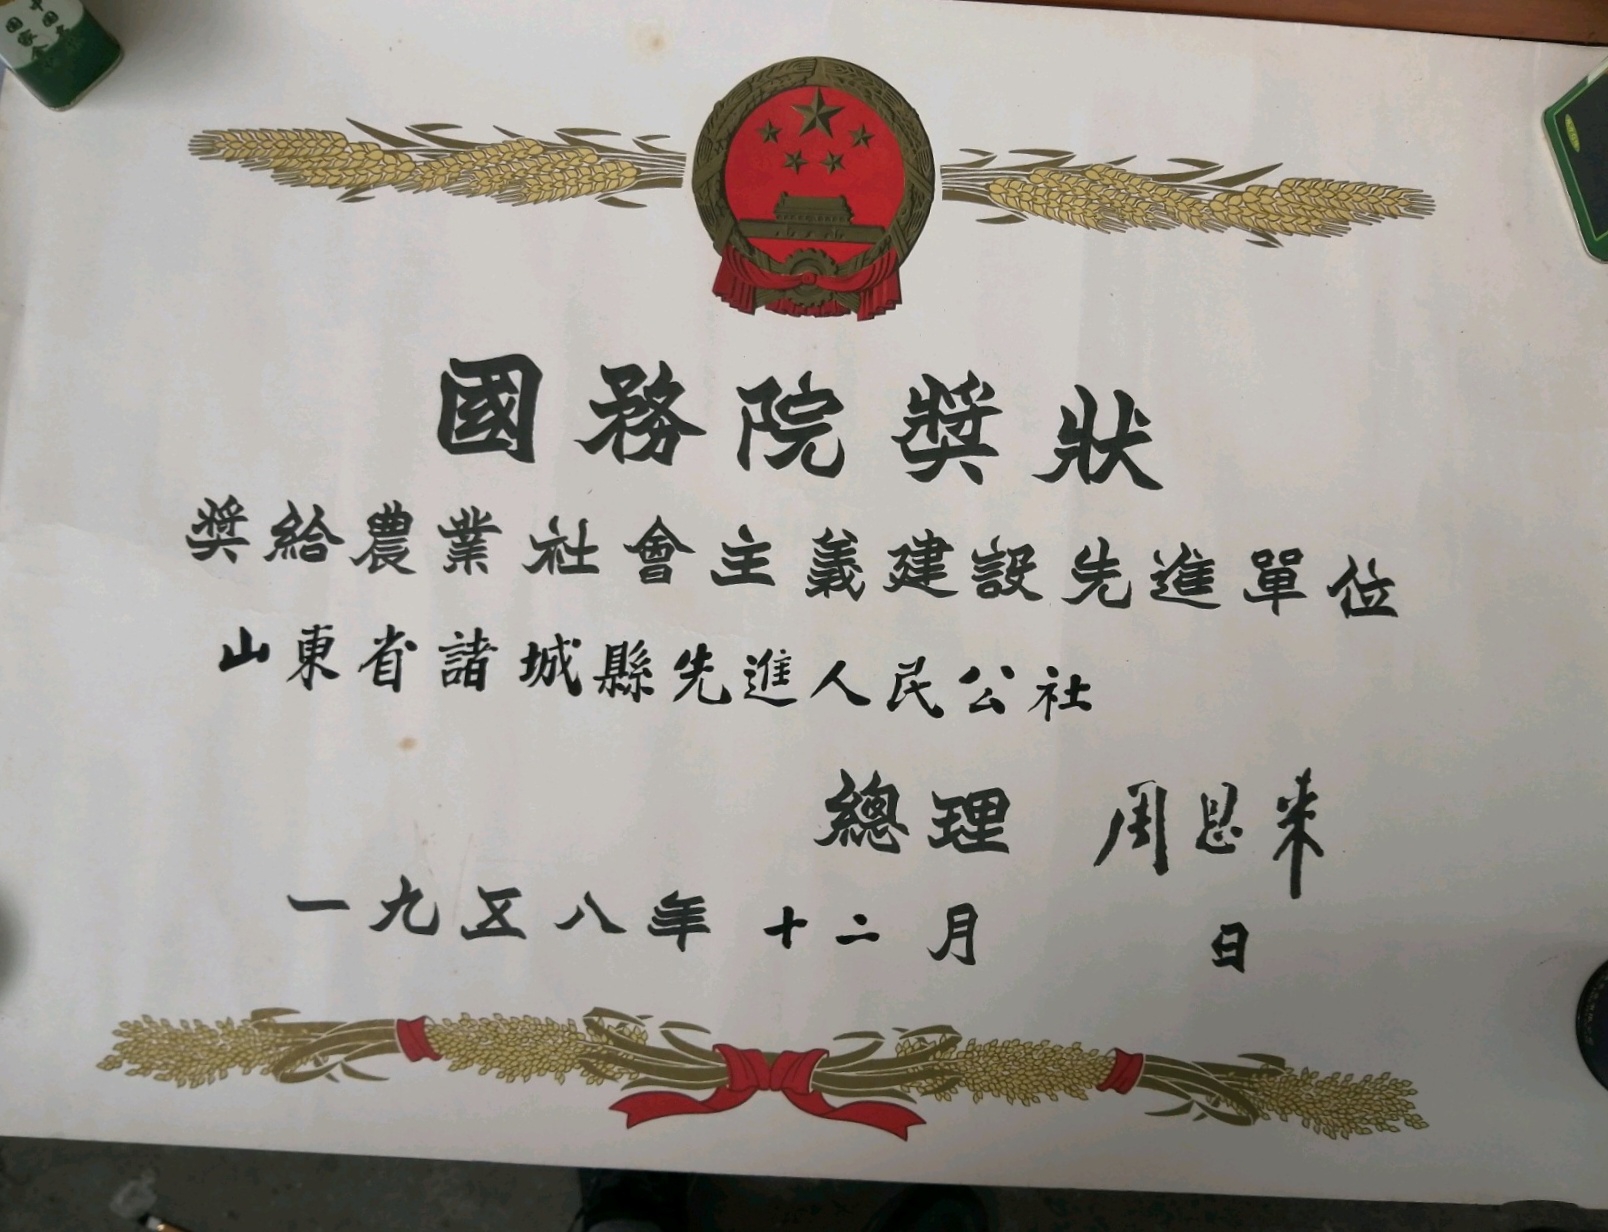 國務院奬狀
奬給農業社會主義建設先進單位
山東省諸城縣先進人民公社
總理 周恩来
一九五八年 十二月 日